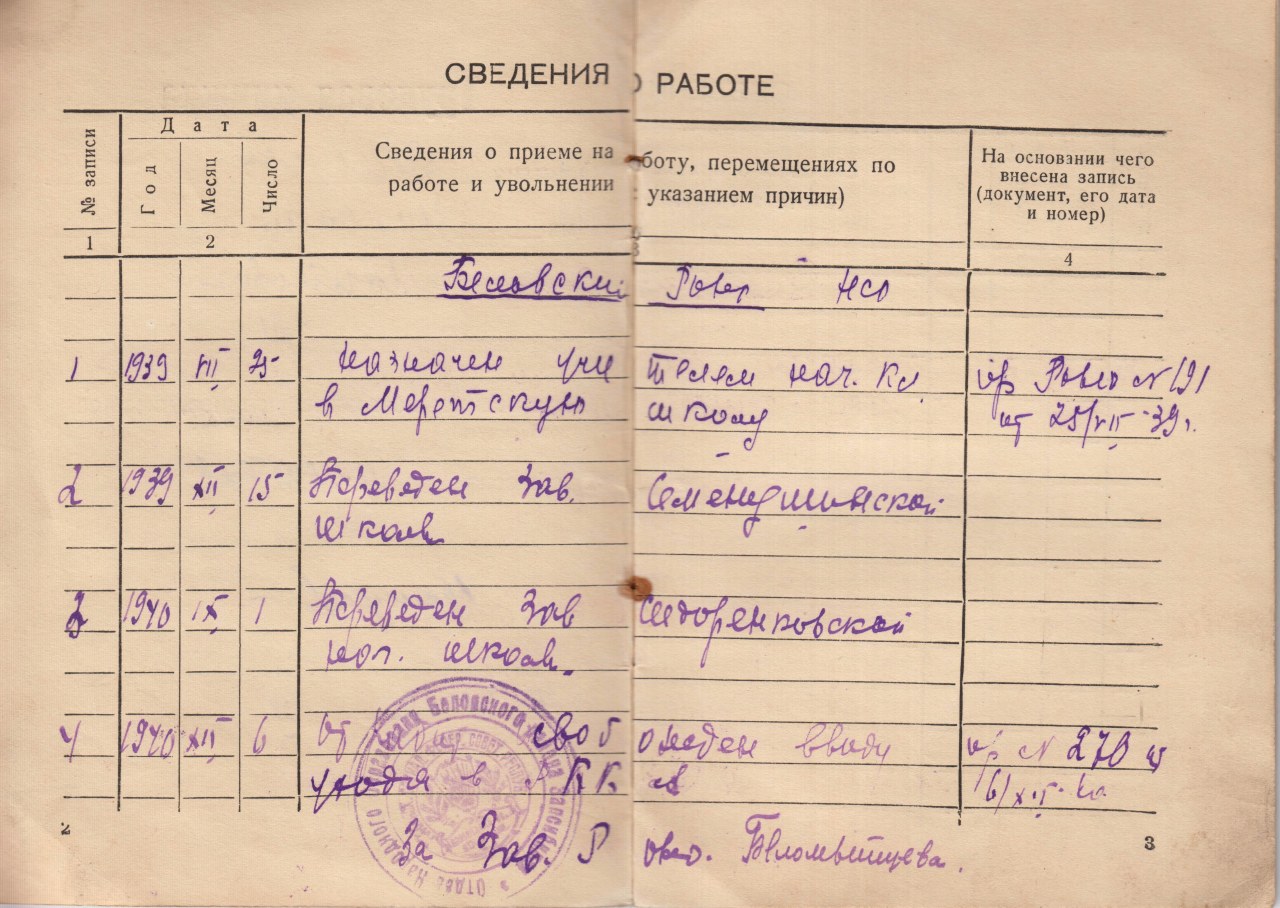 СВЕДЕНИЯ О РАБОТЕ
№ записи
Дата
Год
Месяц
Число
Сведения о приеме на работу, перемещениях по
работе и увольнении (с указанием причин)
На основании чего
внесена запись
(документ, его дата
и номер)
1 2 3 4
Беловский Роно НСО
1 1939 VII 25 назначен учителем нач. кл. пр Роно N 191
в Меретскую школу от 25/VII-39г.
2 1939 XII 15 Переведен Зав. Семенушинской
школы
3 1940 IX 1 Переведен Зав Сидоренковской
нач. школы
4 1940 XII 6 от освобожден ввиду пр N 270 от
ухода в РККА 6/XII-40
За Зав. Роно. Беломытцева.
Отдел Народного Беловского
2
3